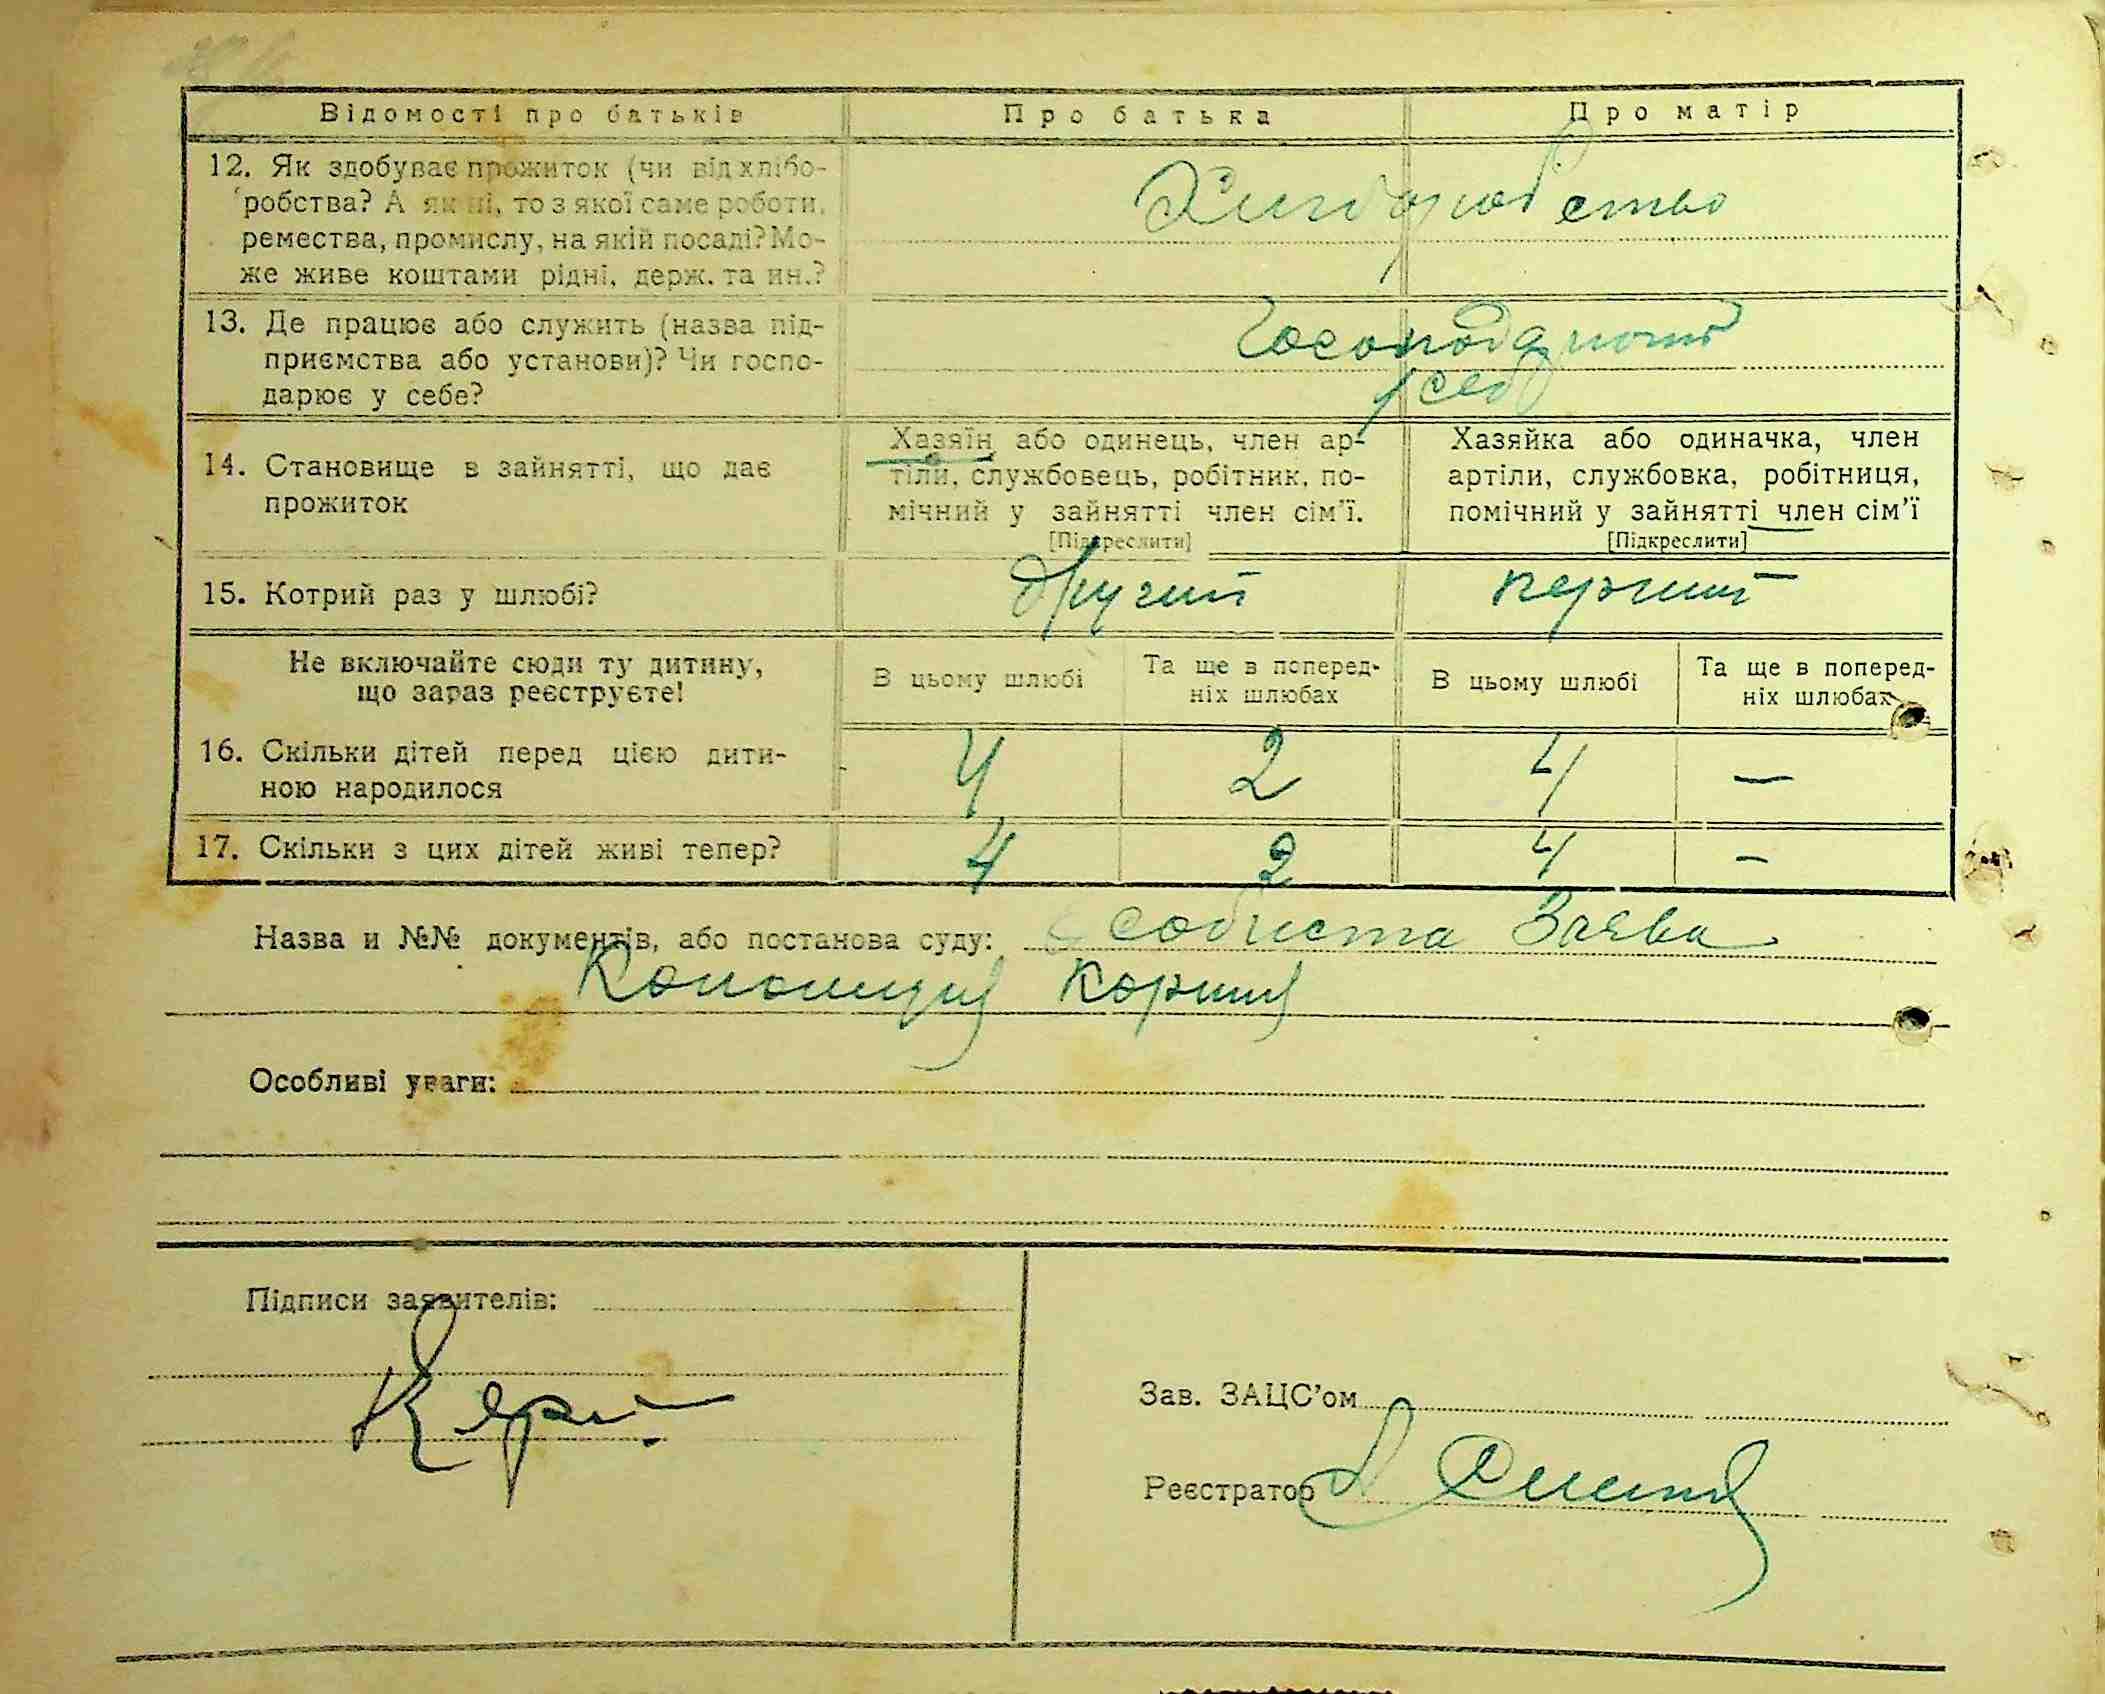 Відомості про батьків Про батька Про матір
12. Як здобуває прожиток (чи від хлібо-
робства? А як ні, то з якої саме роботи,
ремества, промислу, на якій посаді? Мо-
же живе коштами рідні, держ. та ин.?
13. Де працює або служить (назва під-
приємства або установи)? Чи госпо-
дарює у себе?
14. Становище в зайнятті, що дає
прожиток
Хазяїн або одинець, член ар-
тіли, службовець, робітник, по-
мічний у зайнятті член сім'ї.
[Підкреслити]
Хазяйка або одиначка, член
артіли, службовка, робітниця,
помічний у зайнятті член сім'ї
[Підкреслити]
15. Котрий раз у шлюбі? другий перший
Не включайте сюди ту дитину,
що зараз реєструєте!
В цьому шлюбі
Та ще в поперед-
ніх шлюбах
В цьому шлюбі
Та ще в поперед-
ніх шлюбах
16. Скільки дітей перед цією дити-
ною народилося
4 2 4 —
17. Скільки з цих дітей живі тепер? 4 2 4 –
Назва и №№ документів, або постанова суду: особиста Заява
Особливі уваги:
Підписи заявителів:
Зав. ЗАЦС'ом
Реєстратор